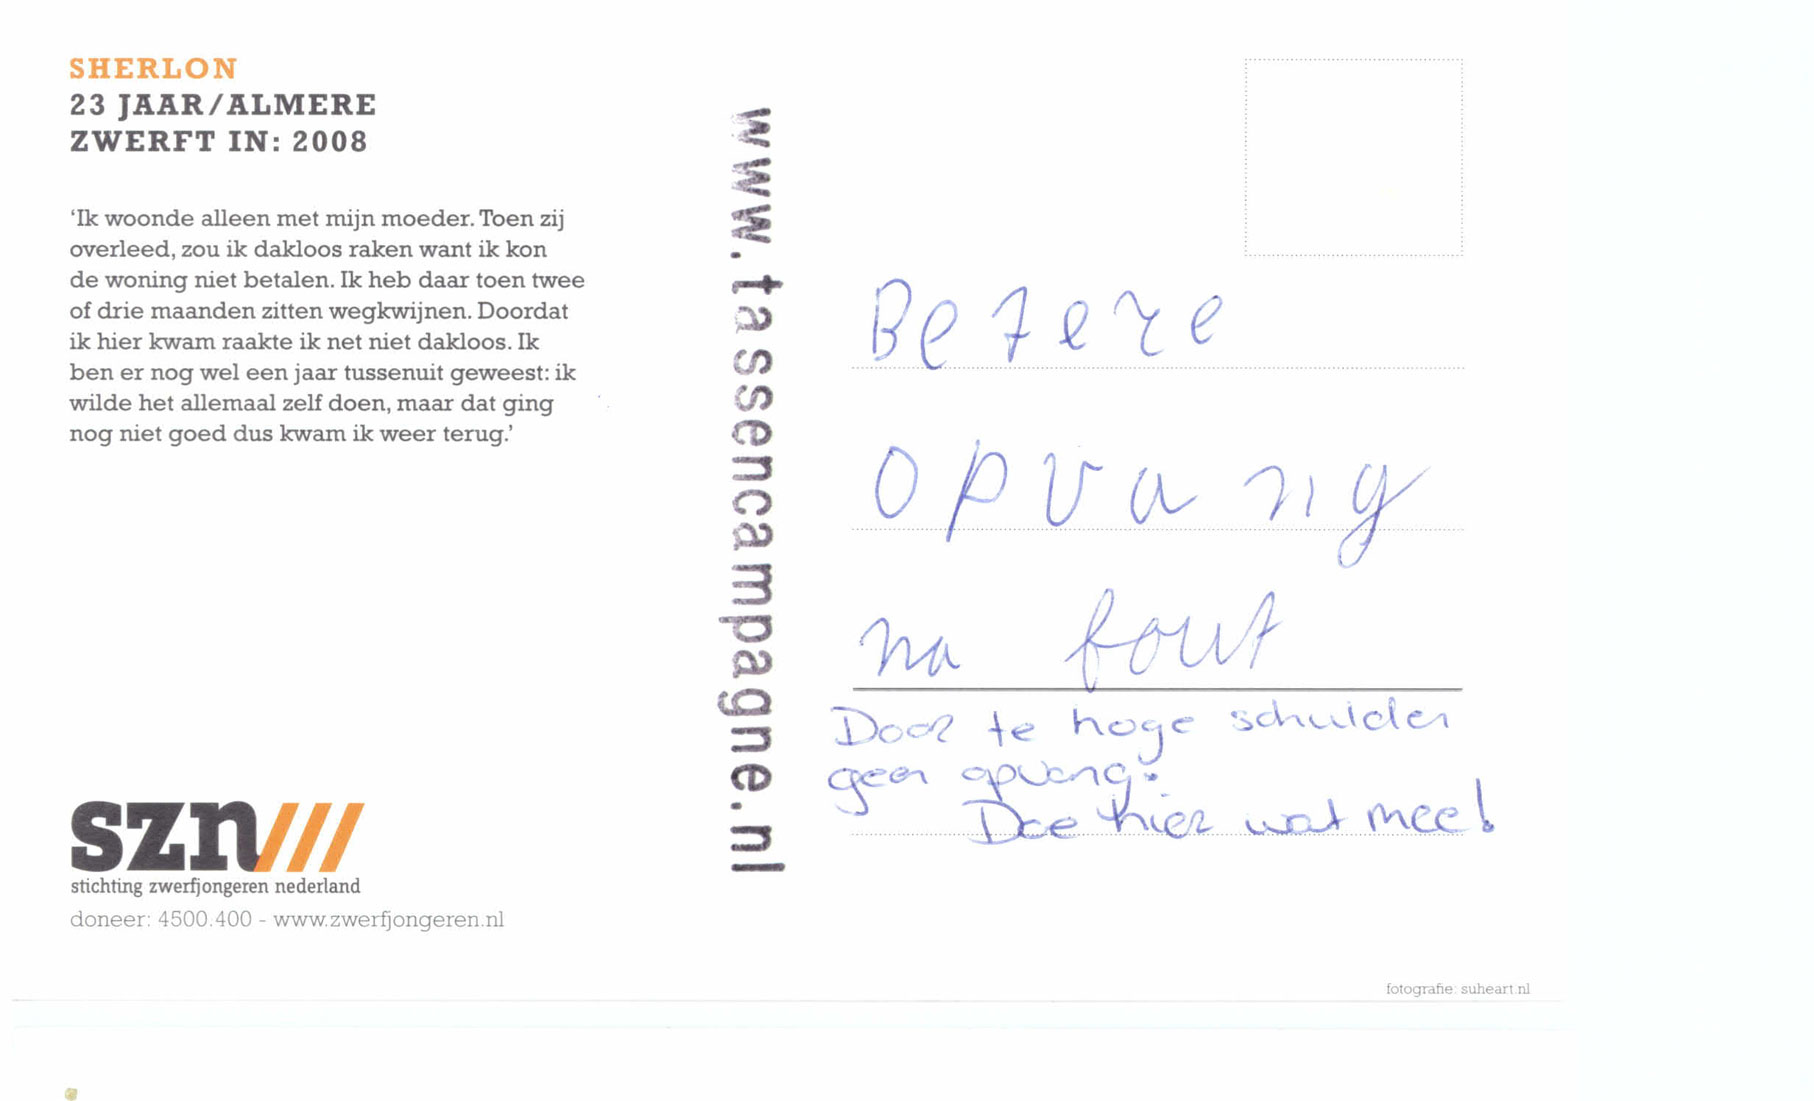 SHERLON
23 JAAR/ALMERE
ZWERFT IN: 2008
‘Ik woonde alleen met mijn moeder. Toen zij
overleed, zou ik dakloos raken want ik kon
de woning niet betalen. Ik heb daar toen twee
of drie maanden zitten wegkwijnen. Doordat
ik hier kwam raakte ik net niet dakloos. Ik
ben er nog wel een jaar tussenuit geweest: ik
wilde het allemaal zelf doen, maar dat ging
nog niet goed dus kwam ik weer terug.’
szn///
stichting zwerfjongeren nederland
doneer: 4500.400 - www.zwerfjongeren.nl
www.tassencampagne.nl
Betere
opvang
na fout
Door te hoge schulden
geen opvang.
Doe hier wat mee!
fotografie: suheart.nl